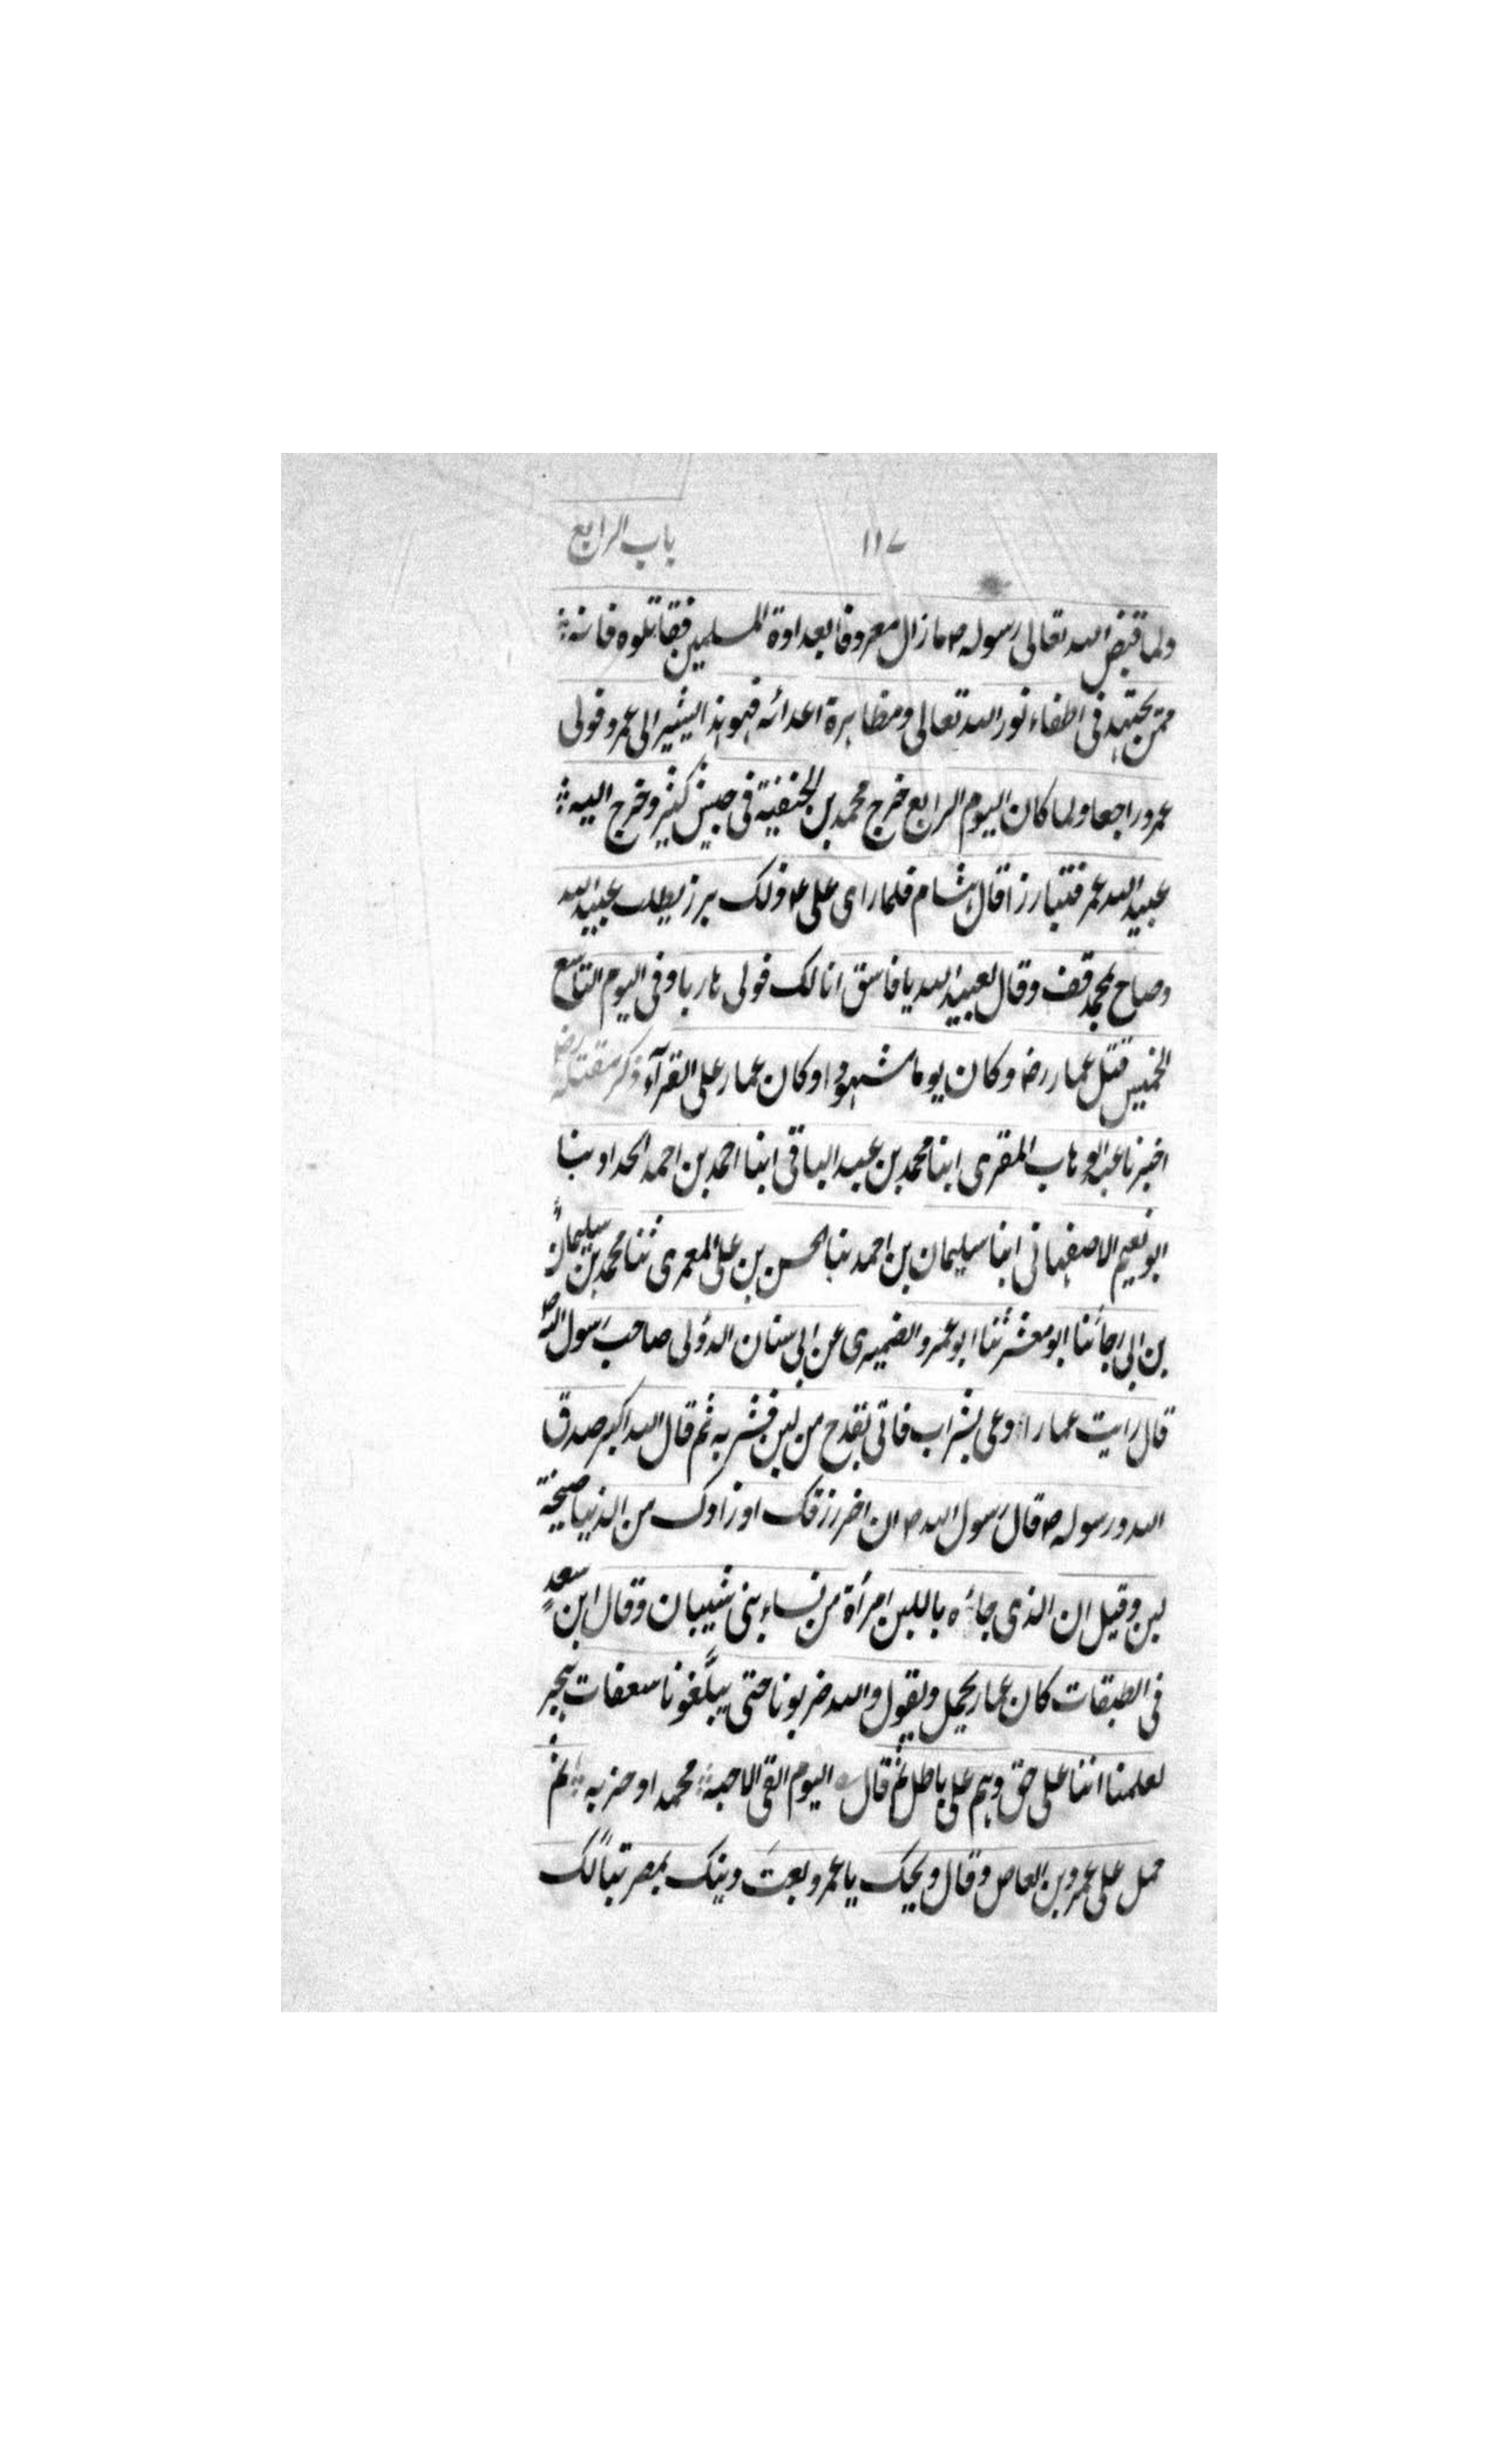 ۱۱۷ باب الرابع
ولما قبض الله تعالى رسوله ص ما زال معروفا بعداوة المسلمين فقاتلوه فانه
ممن يجتهد فى اطفاء نور الله تعالى ومظاهرة اعدائه فهو هذا يشير الى عمرو فولى
عمرو راجعا ولما كان اليوم الرابع خرج محمد بن الحنفية فى جيش كثير وخرج اليه
عبيد الله عمر فتبارزا قال هشام فلما راى على ع ذلك برز يطلب عبيد الله
وصاح بمحمد قف وقال لعبيد الله يا فاسق انا لك فولى هاربا وفى اليوم التاسع
الخميس قتل عمار رض وكان يوما مشهودا وكان عمار على القرآء ذكر مقتله رض
اخبرنا عبد الوهاب المقرى ابنا محمد بن عبد الباقى ابنا احمد بن احمد الحداد بنا
ابو نعيم الاصفهانى ابنا سليمان بن احمد بنا الحسن بن على المعمرى ثنا محمد بن سليمان
بن ابى رجا ثنا ابو معشر ثنا ابو عمرو الضميرى عن ابى سنان الدؤلى صاحب رسول الله ص
قال رايت عمارا دعى بشراب فاتى بقدح من لبن فشربه ثم قال الله اكبر صدق
الله ورسوله ص قال رسول الله ص ان اخر رزقك او زادك من الدنيا صيحة
لبن وقيل ان الذى جاءه باللبن امرأة من نساء بنى شيبان وقال ابن سعد
فى الطبقات كان عمار يحمل ويقول والله لو ضربونا حتى يبلّغونا سعفات هجر
لعلمنا اننا على حق وهم على باطل ثم قال اليوم القى الاحبه محمدا وحزبه ثم
حمل على عمرو بن العاص وقال ويحك يا عمرو بعتَ دينك بمصر تبّاً لك